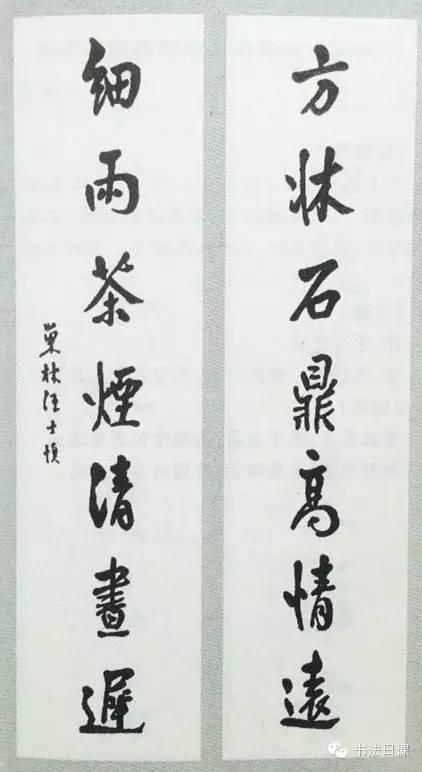 方牀石鼎高情遠
細雨茶煙清晝遲
巢林汪士慎
书法日课